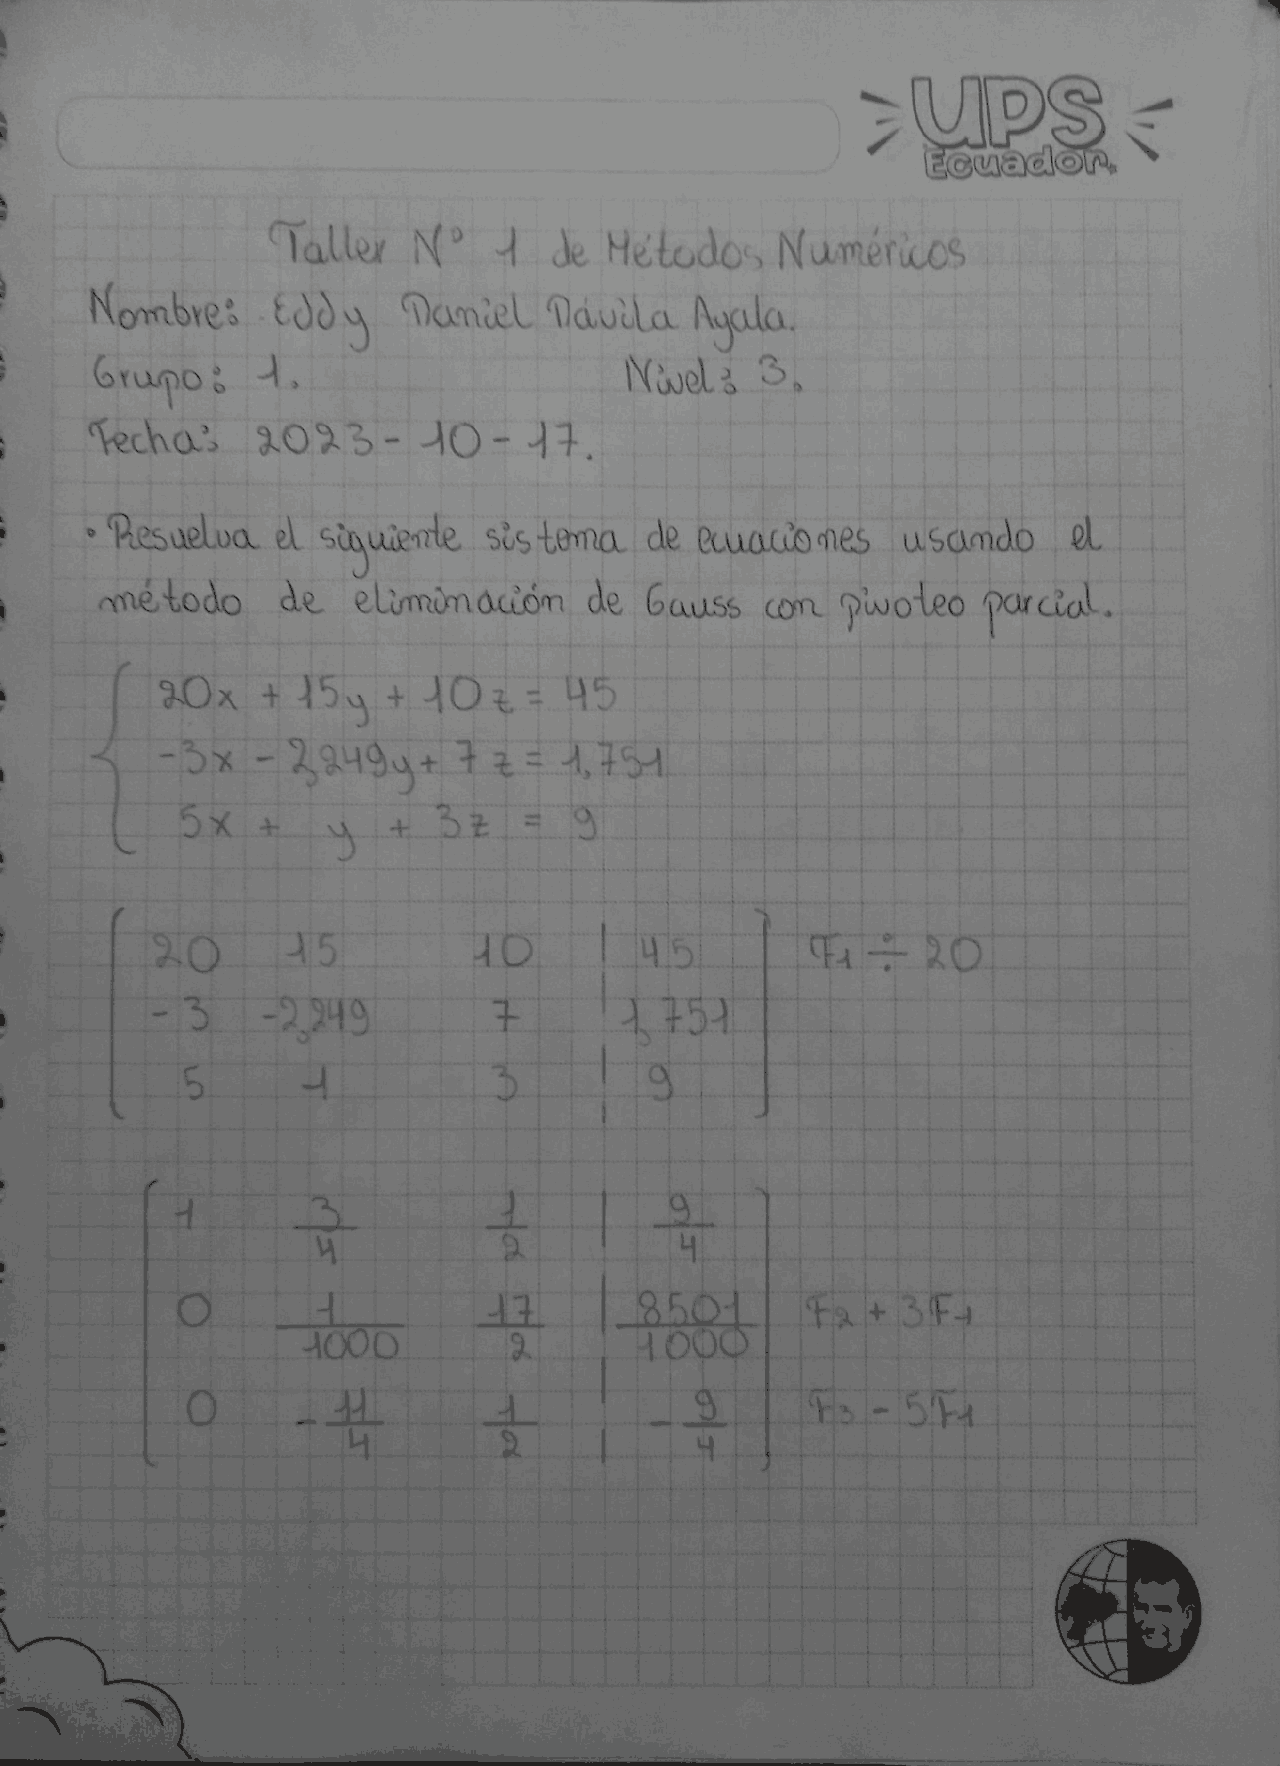 UPS
Ecuador.
Taller N° 1 de Métodos Numéricos
Nombre: Eddy Daniel Dávila Ayala.
Grupo: 1. Nivel: 3.
Fecha: 2023-10-17.
• Resuelva el siguiente sistema de ecuaciones usando el
método de eliminación de Gauss con pivoteo parcial.
20x + 15y + 10z = 45
-3x - 2,249y + 7z = 1,751
5x + y + 3z = 9
20 15 10 | 45 F1 ÷ 20
-3 -2,249 7 | 1,751
5 1 3 | 9
1 3/4 1/2 | 9/4
0 1/1000 17/2 | 8501/1000 F2 + 3F1
0 -11/4 1/2 | -9/4 F3 - 5F1